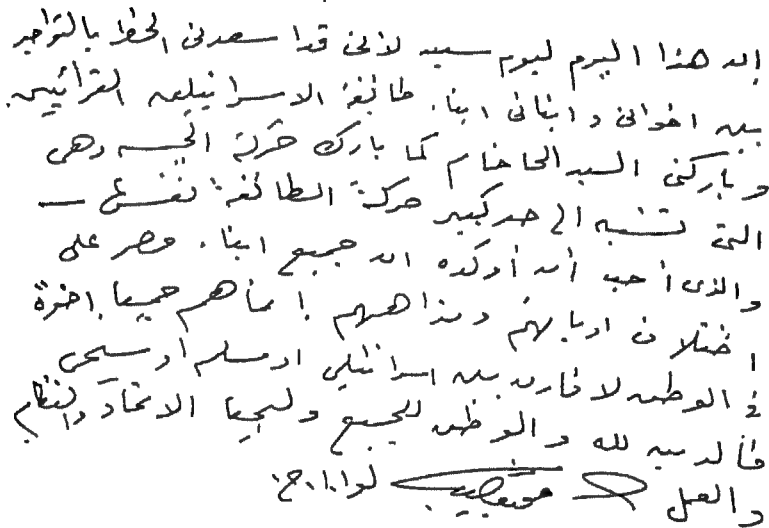 إن هذا اليوم ليوم سعيد لأنى قد أسعدنى الحظ بالتواجد
بين اخوانى وابنائى ابناء طائفة الاسرائيليين القرائيين
وباركنى السيد الحاخام كما بارك حركة الجيش وهى
التى تشبه الى حد كبير حركة الطائفة
والذى أحب أن أؤكده ان جميع ابناء مصر على
اختلاف اديانهم ومذاهبهم إنما هم جميعا إخوة
فى الوطن لا فارق بين اسرائيلى او مسلم أو مسيحى
فالدين لله والوطن للجميع وليحيا الاتحاد والنظام
والعمل محمد نجيب لواء أ. ح.